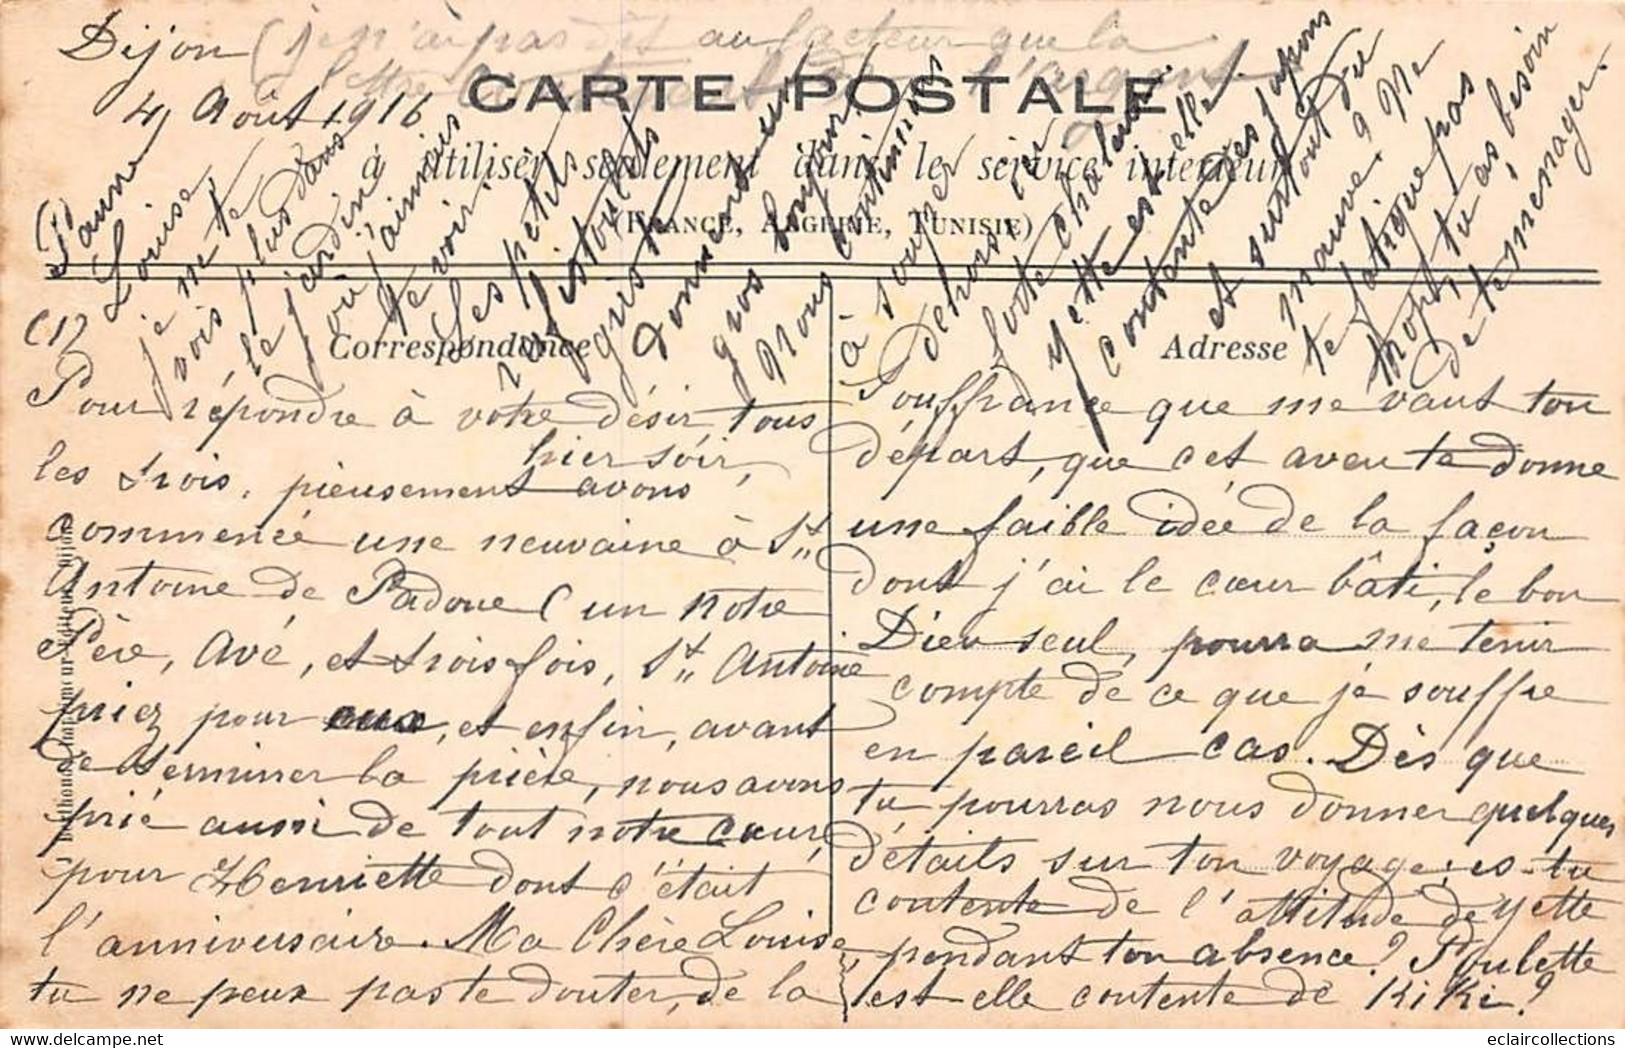 Dijon (je n'ai pas dit au facteur que la
lettre contenant de l'argent
4 Août 1916
CARTE POSTALE
à utiliser seulement dans le service intérieur
(FRANCE, ALGÉRIE, TUNISIE)
Correspondance
Adresse
(1)
Louise,
je ne te
vois plus dans
le jardin
où j'aimais
te voir.
Les petits
gris
donnent un
gros bonjour!
Nous continuons
à souper
dehors
forte chaleur.
Yette est-elle
contente des jupons
et surtout du
mauve? Ne
te fatigue pas
trop, tu as besoin
de te ménager.
Pour répondre à votre désir, tous
les trois, pieusement avons hier soir,
commencé une neuvaine à St
Antoine de Padoue (un notre
Père, Avé, et trois fois, St Antoine
priez pour eux, et enfin, avant
de terminer la prière, nous avons
prié aussi de tout notre cœur,
pour Henriette dont c'était
l'anniversaire. Ma Chère Louise,
tu ne peux pas te douter, de la
souffrance que me vaut ton
départ, que cet aveu te donne
une faible idée de la façon
dont j'ai le cœur bâti, le bon
Dieu seul, pourra me tenir
compte de ce que je souffre
en pareil cas. Dès que
tu pourras nous donner quelques
détails sur ton voyage; es-tu
contente de l'attitude de Yette
pendant ton absence? Poulette
est elle contente de Kiki?
eclaircollections
delcampe.net